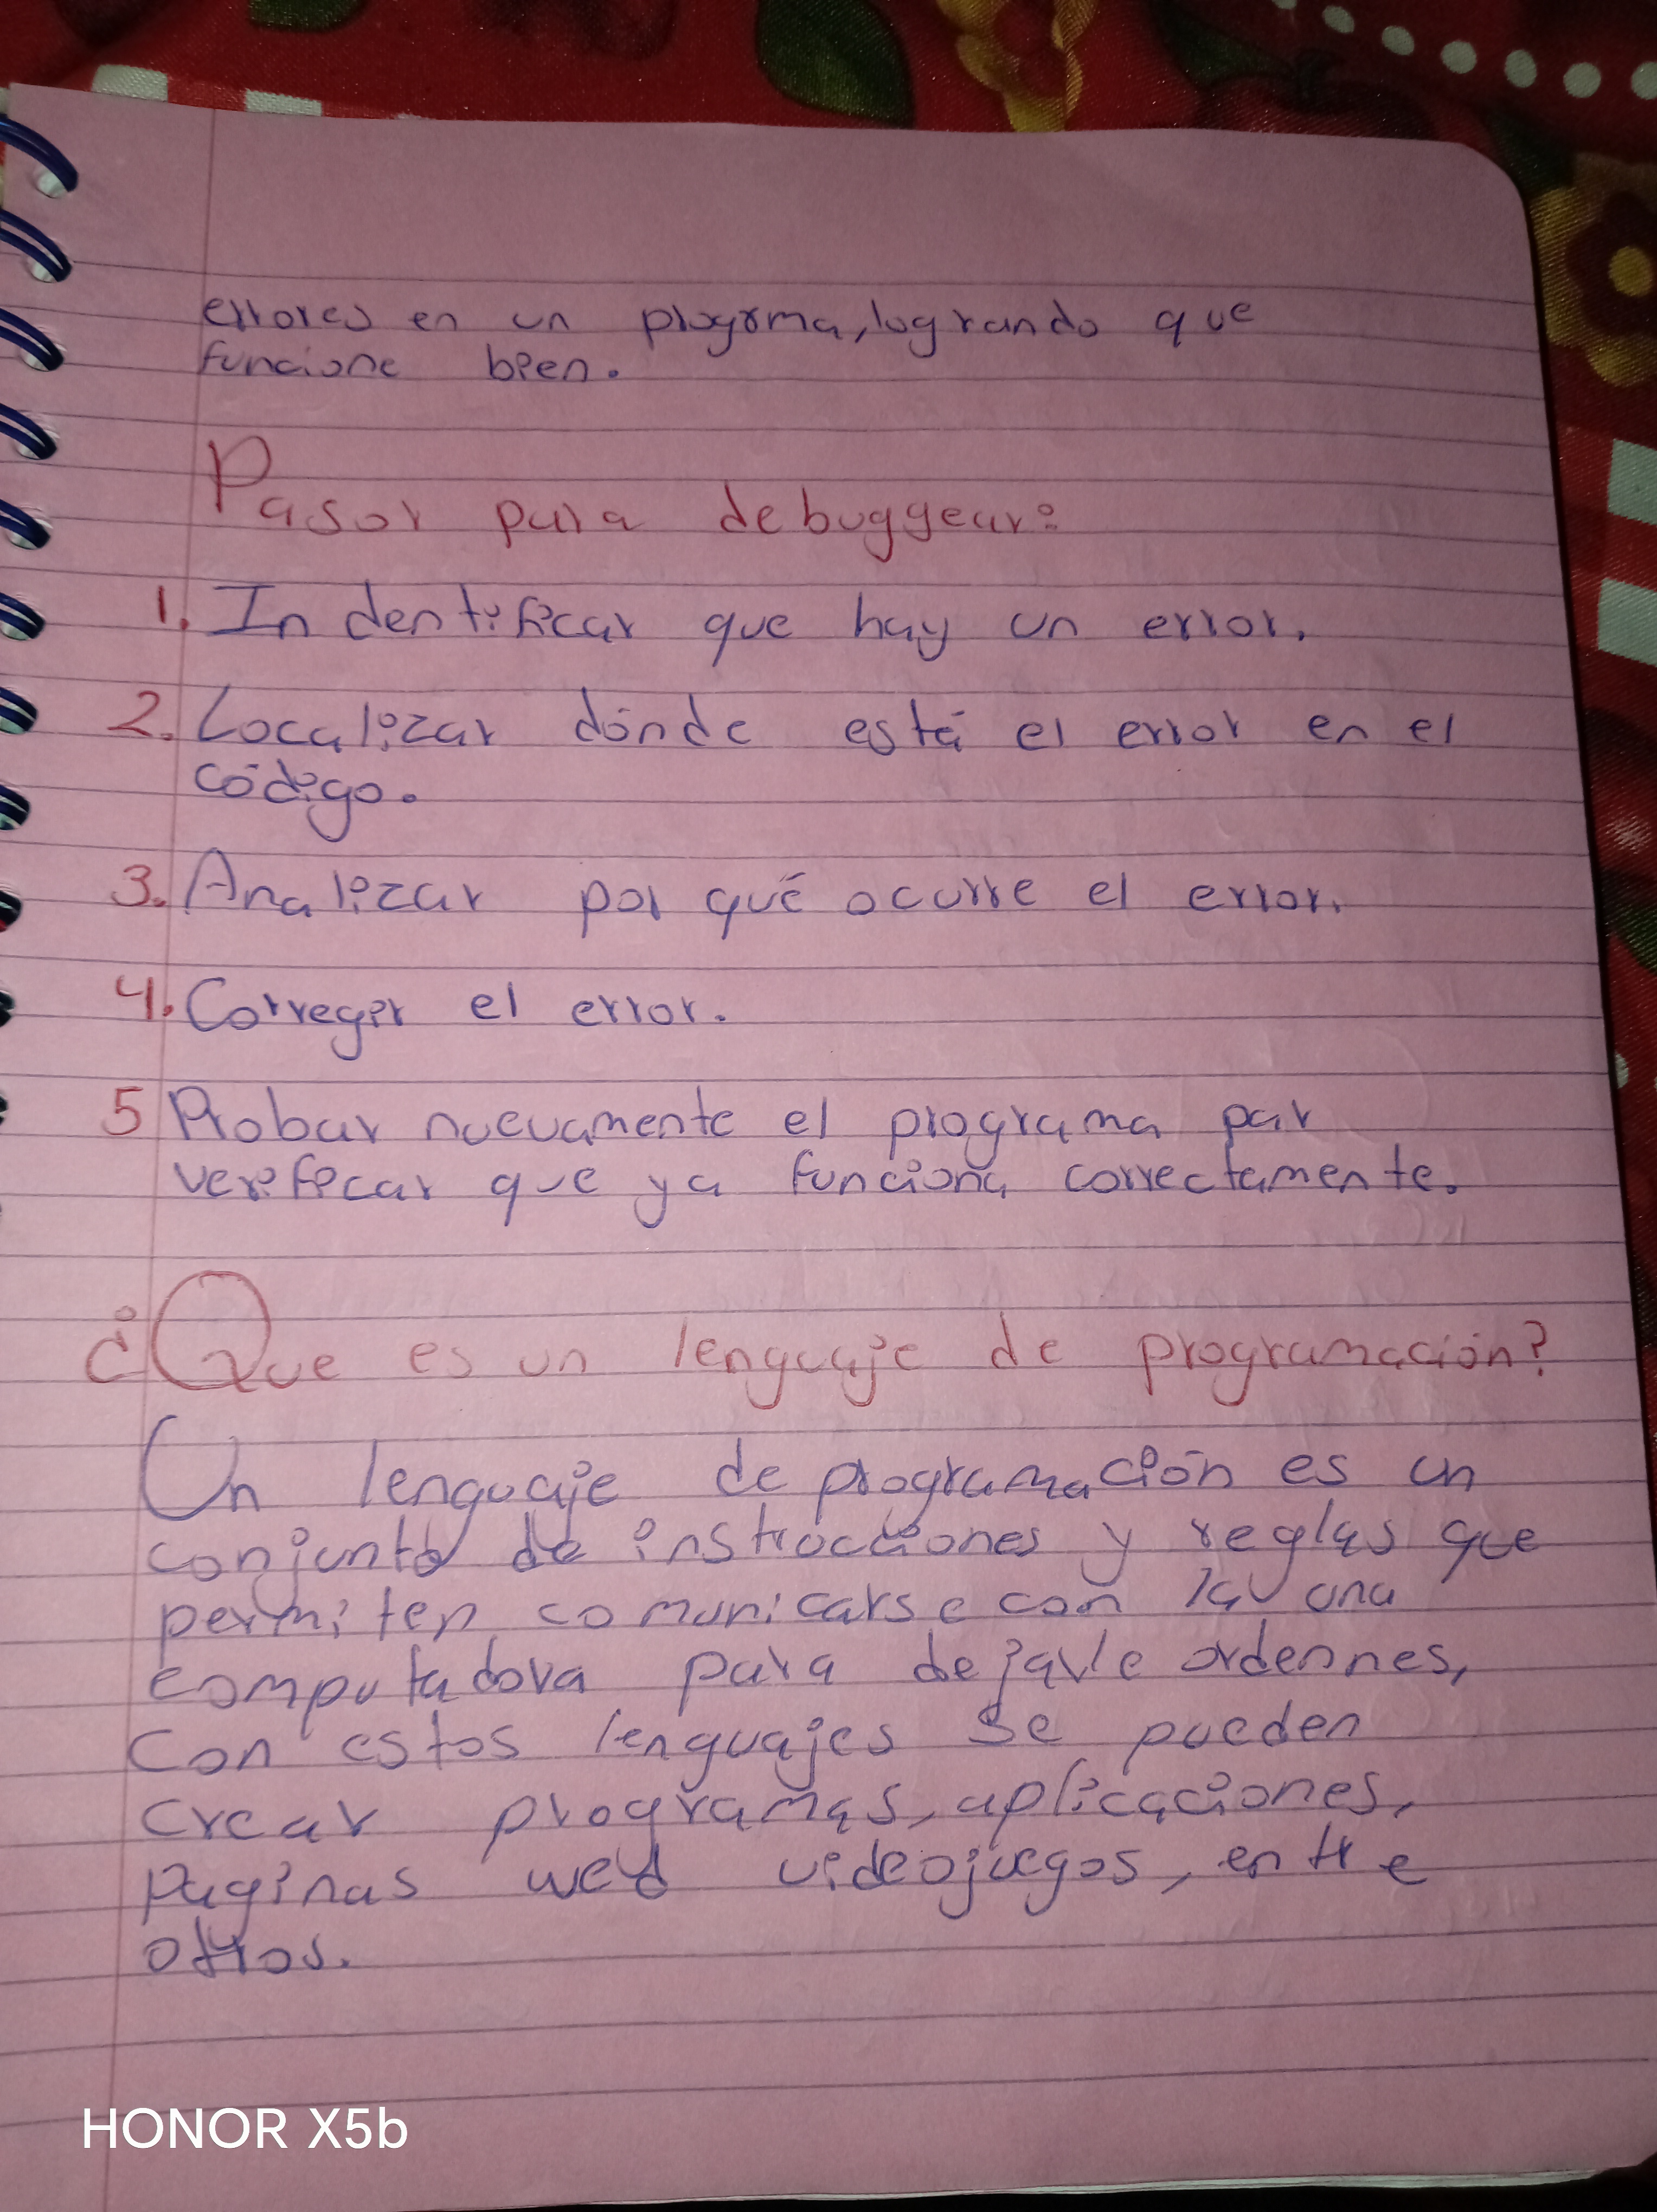 errores en un progrma, logrando que
funcione bien.
Pasor para debuggear:
1. Indentificar que hay un error.
2. Localizar dónde está el error en el
código.
3. Analizar por qué ocurre el error.
4. Corregir el error.
5 Probar nuevamente el programa par
verificar que ya funciona correctamente.
¿Que es un lenguaje de programación?
Un lenguaje de programación es un
conjunto de instrucciones y reglas que
permiten comunicarse con la una
computadora para dejarle ordennes,
Con estos lenguajes se pueden
crear programas, aplicaciones,
paginas web videojuegos, entre
otros.
HONOR X5b